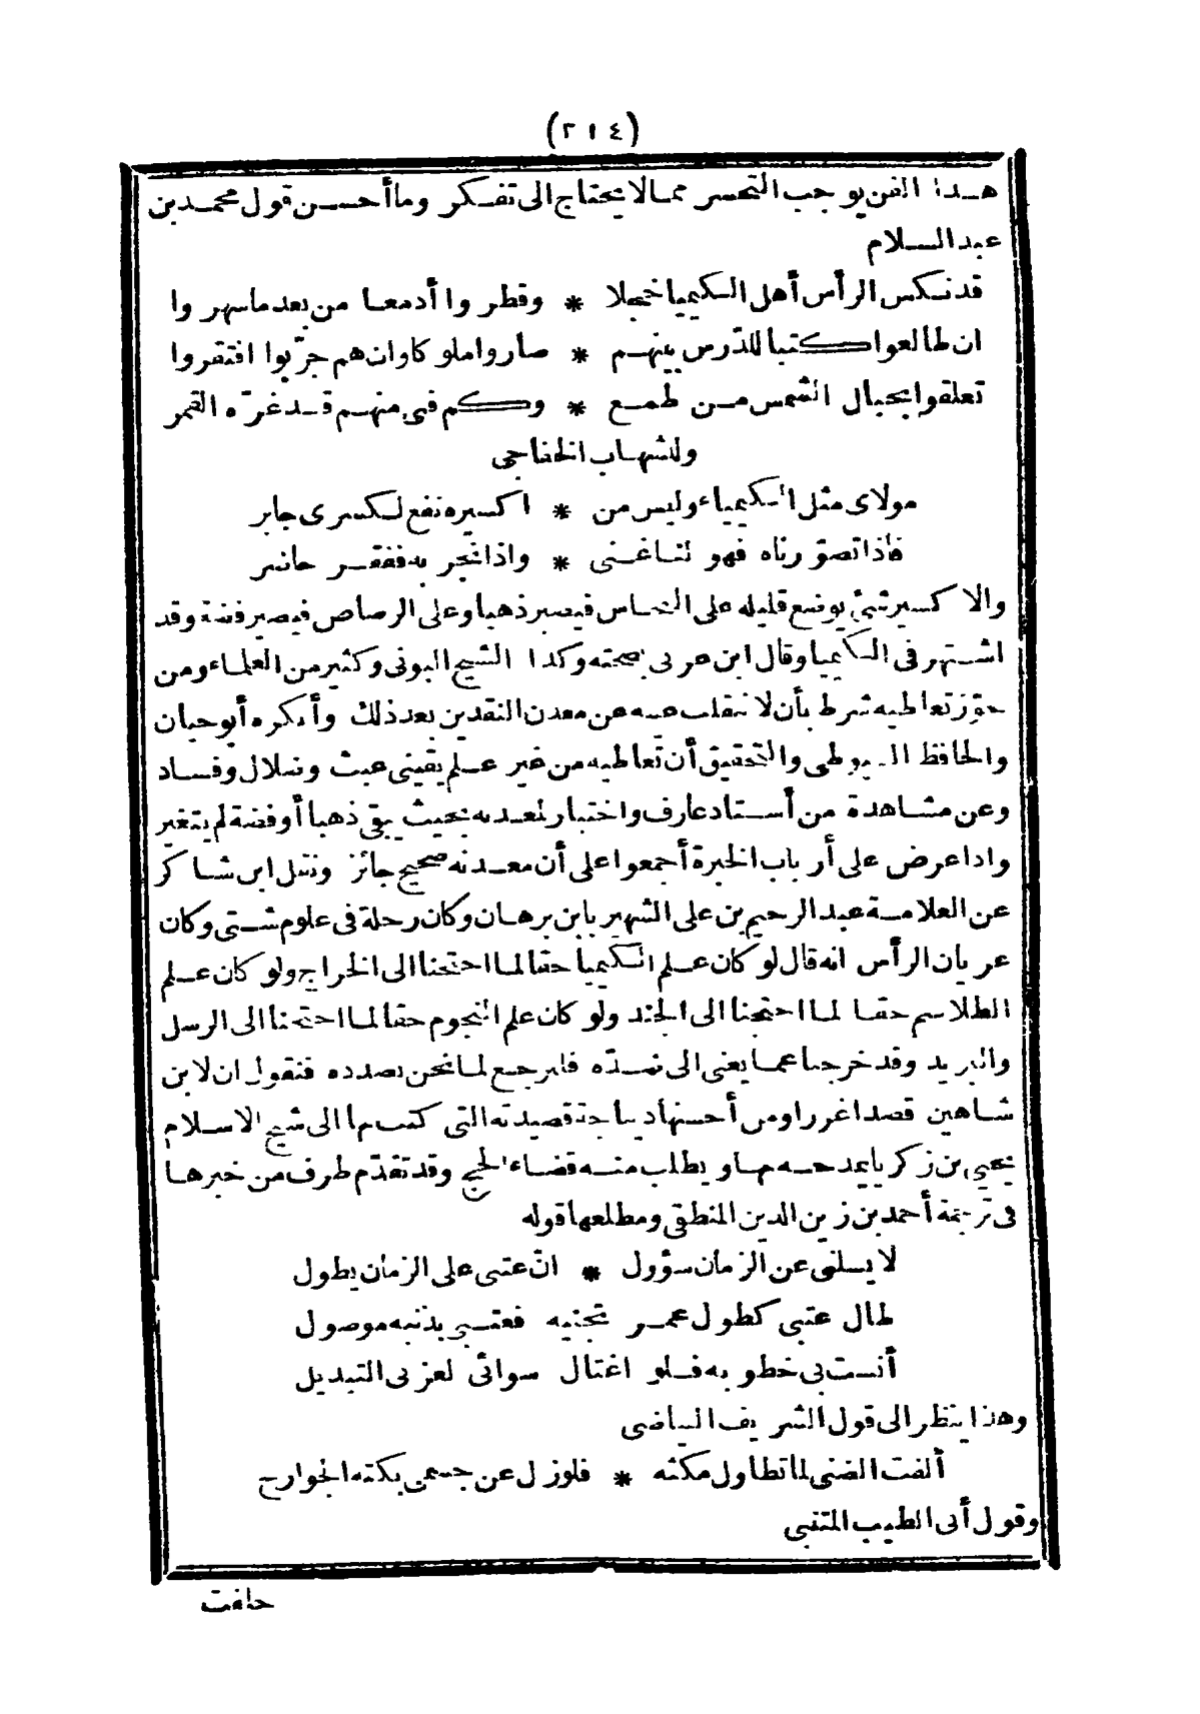 (٢١٤)
هذا الفن يوجب التحسر ممالا يحتاج الى تفكر وما أحسن قول محمد بن
عبد السلام
قد نكس الرأس أهل الكيميا خجلا * وقطروا أدمعا من بعد ما سهروا
ان طالعوا كتبا للدرس بينهم * صاروا ملوكا وان هم جرّبوا افتقروا
تعلقوا بحبال الشمس من طمع * وكم فتى منهم قد غرّه القمر
وللشهاب الخفاجى
مولاى مثل الكيمياء وليس من * اكسيره نفع لكسرى جابر
فاذا تصوّرناه فهو لنا غنى * واذا تجربه ففقر حاضر
والاكسير شئ يوضع قليله على النحاس فيصير ذهبا وعلى الرصاص فيصير فضة وقد
اشتهر فى الكيميا وقال ابن عربى بصحته وكذا الشيخ البونى وكثير من العلماء ومن
جوّز تعاطيه شرط بأن لا تنقلب عينه عن معدن النقدين بعد ذلك وأنكره أبو حيان
والحافظ السيوطى والتحقيق أن تعاطيه من غير علم يقينى عبث وضلال وفساد
وعن مشاهدة من أستاد عارف واختبار لمعدنه بحيث يبقى ذهبا أو فضة لم يتغير
واذا عرض على أرباب الخبرة أجمعوا على أن معدنه صحيح جائز ونقل ابن شاكر
عن العلامة عبد الرحيم بن على الشهير بابن برهان وكان رحلة فى علوم شتى وكان
عريان الرأس انه قال لو كان علم الكيميا حقا لما احتجنا الى الخراج ولو كان علم
الطلاسم حقا لما احتجنا الى الجند ولو كان علم النجوم حقا لما احتجنا الى الرسل
والبريد وقد خرجنا عما يعنى الى ضدّه فلنرجع لما نحن بصدده فنقول ان لابن
شاهين قصدا غررا ومن أحسنها ديباجة قصيدته التى كتب بها الى شيخ الاسلام
يحيى بن زكريا يمدحه بها ويطلب منه قضاء الحج وقد تقدّم طرف من خبرها
فى ترجمة أحمد بن زين الدين المنطقى ومطلعها قوله
لا يسلنى عن الزمان سؤول * انّ عتبى على الزمان يطول
طال عتبى كطول عمر تجنيه فعتبى بذنبه موصول
أنست بى خطوبه فلو اغتال سوائى لعزنى التبديل
وهذا ينظر الى قول الشريف البياضى
ألفت الضنى لما تطاول مكثه * فلو زل عن جسمى بكته الجوارح
وقول أبى الطيب المتنبى
حلفت